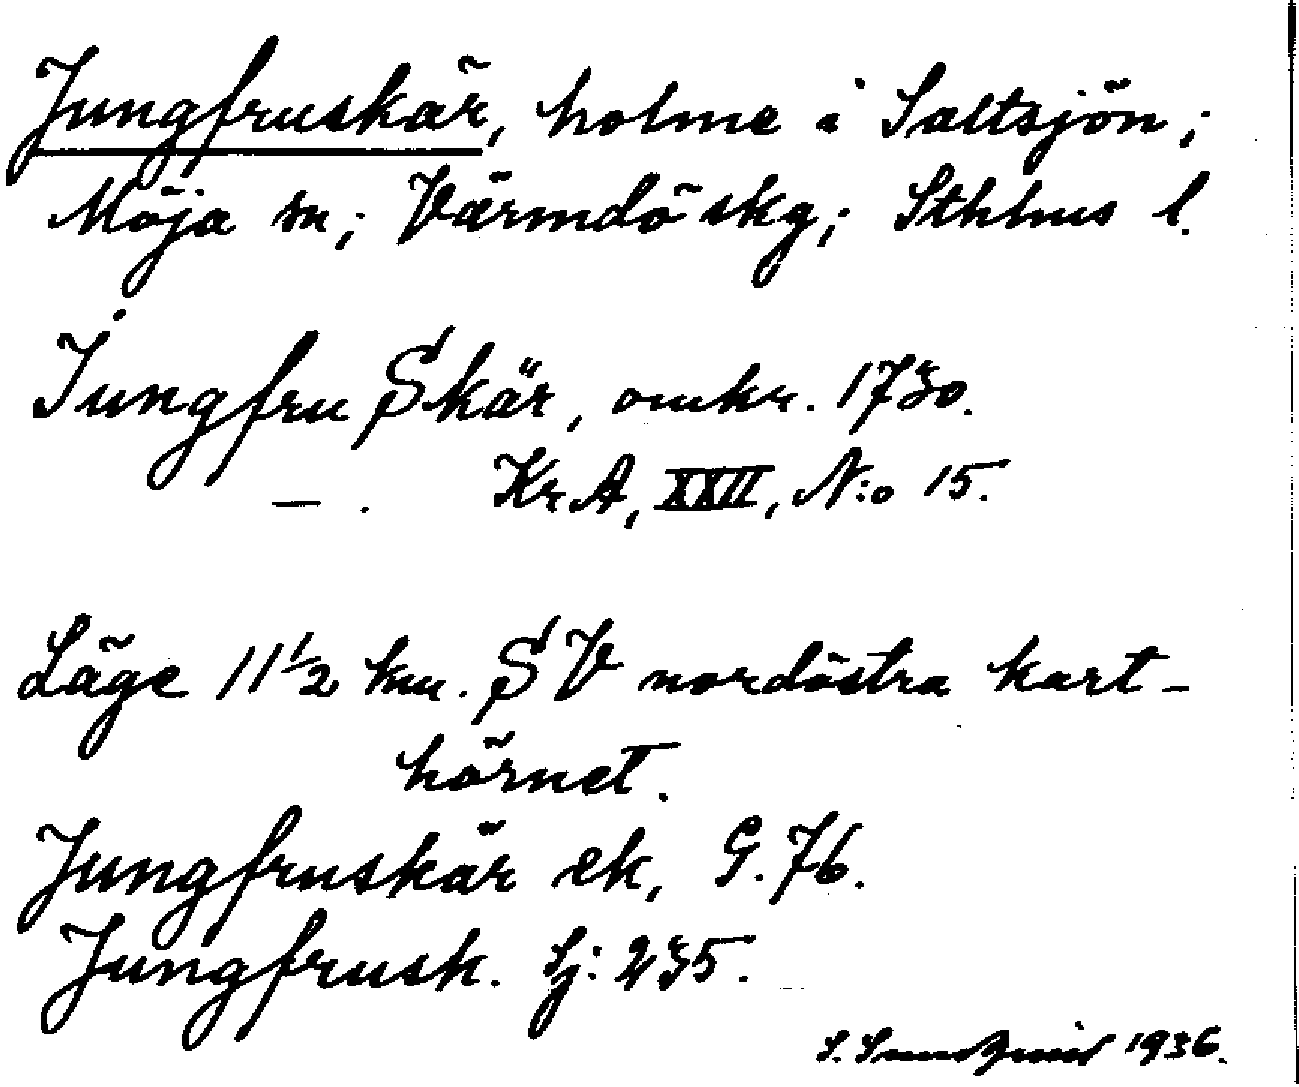 Jungfruskär, holme i Saltsjön;
Möja sn; Värmdö skg; Sthlms l.
Jungfru Skär, omkr. 1730.
— . KrA, XXII, N:o 15.
Läge 11½ km. SV nordöstra kart-
hörnet.
Jungfruskär ek, G. 76.
Jungfrusk. Sj: 235.
S. 1936.